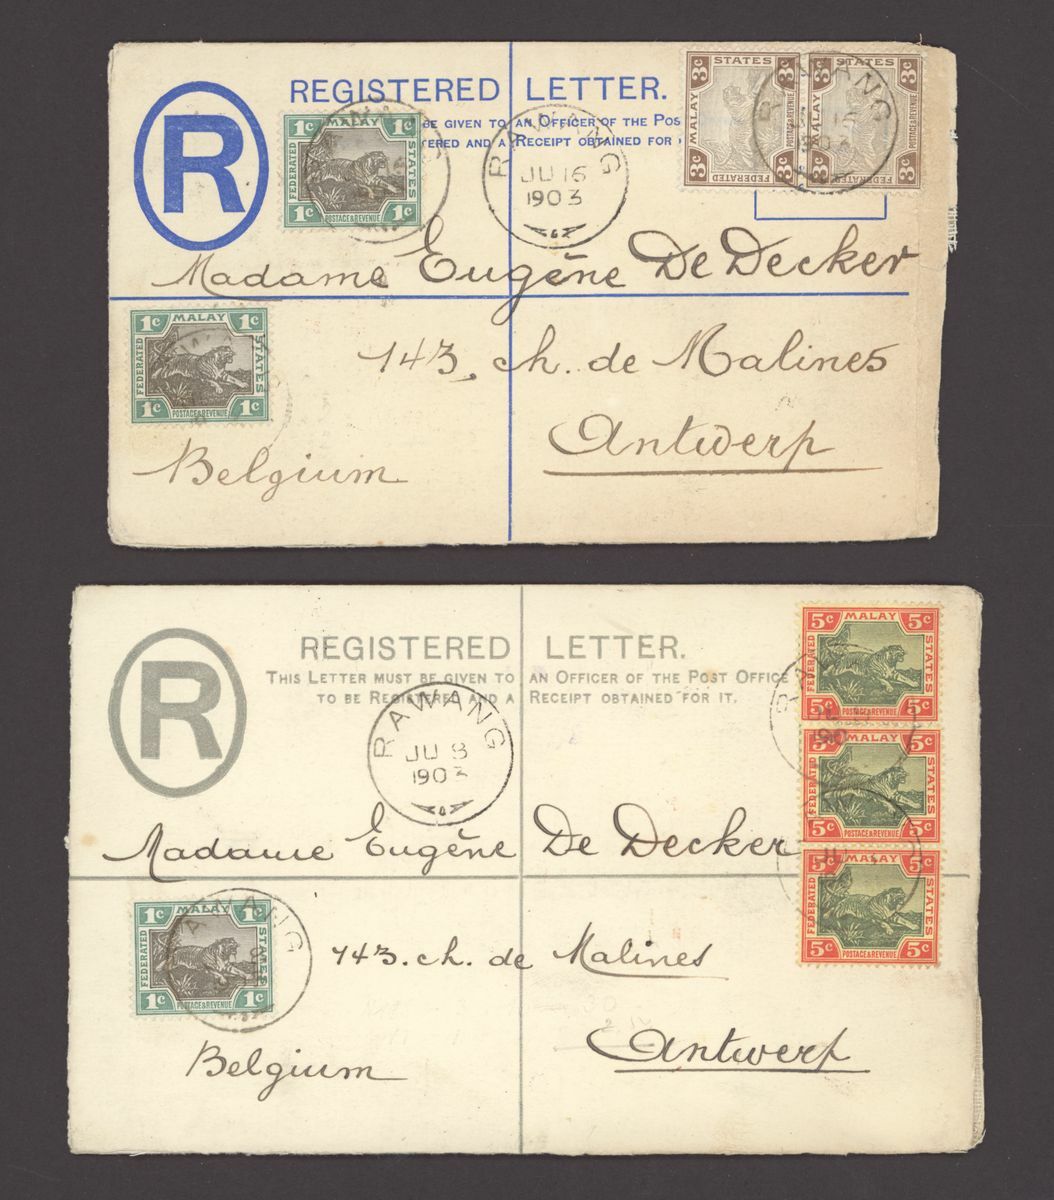 REGISTERED LETTER.
BE GIVEN TO AN OFFICER OF THE POS
ERED AND A RECEIPT OBTAINED FOR
R
1c MALAY 1c
FEDERATED STATES
1c POSTAGE & REVENUE 1c
RAWANG
JU 16
1903
3c STATES 3c
MALAY POSTAGE & REVENUE
3c FEDERATED 3c
3c STATES 3c
MALAY POSTAGE & REVENUE
3c FEDERATED 3c
RAWANG
Madame Eugène De Decker
1c MALAY 1c
FEDERATED STATES
1c POSTAGE & REVENUE 1c
143, ch. de Malines
Antwerp
Belgium
REGISTERED LETTER.
THIS LETTER MUST BE GIVEN TO AN OFFICER OF THE POST OFFICE
TO BE REGISTERED AND A RECEIPT OBTAINED FOR IT.
R
RAWANG
JU 8
1903
5c MALAY 5c
FEDERATED STATES
5c POSTAGE & REVENUE 5c
5c MALAY 5c
FEDERATED STATES
5c POSTAGE & REVENUE 5c
5c MALAY 5c
FEDERATED STATES
5c POSTAGE & REVENUE 5c
Madame Eugène De Decker
1c MALAY 1c
FEDERATED STATES
1c POSTAGE & REVENUE 1c
143. ch. de Malines
Antwerp
Belgium